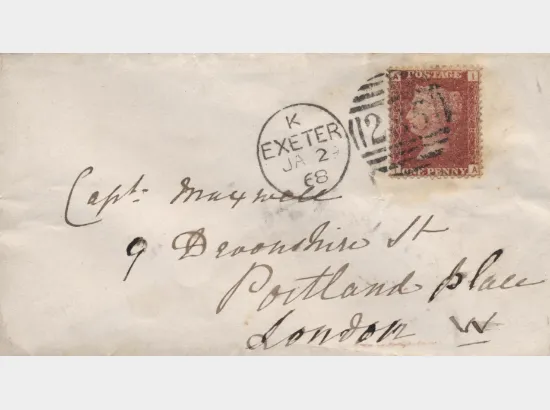 POSTAGE
ONE PENNY
K
EXETER
JA 2
68
Capt. Maxwell
9 Devonshire St
Portland place
London W